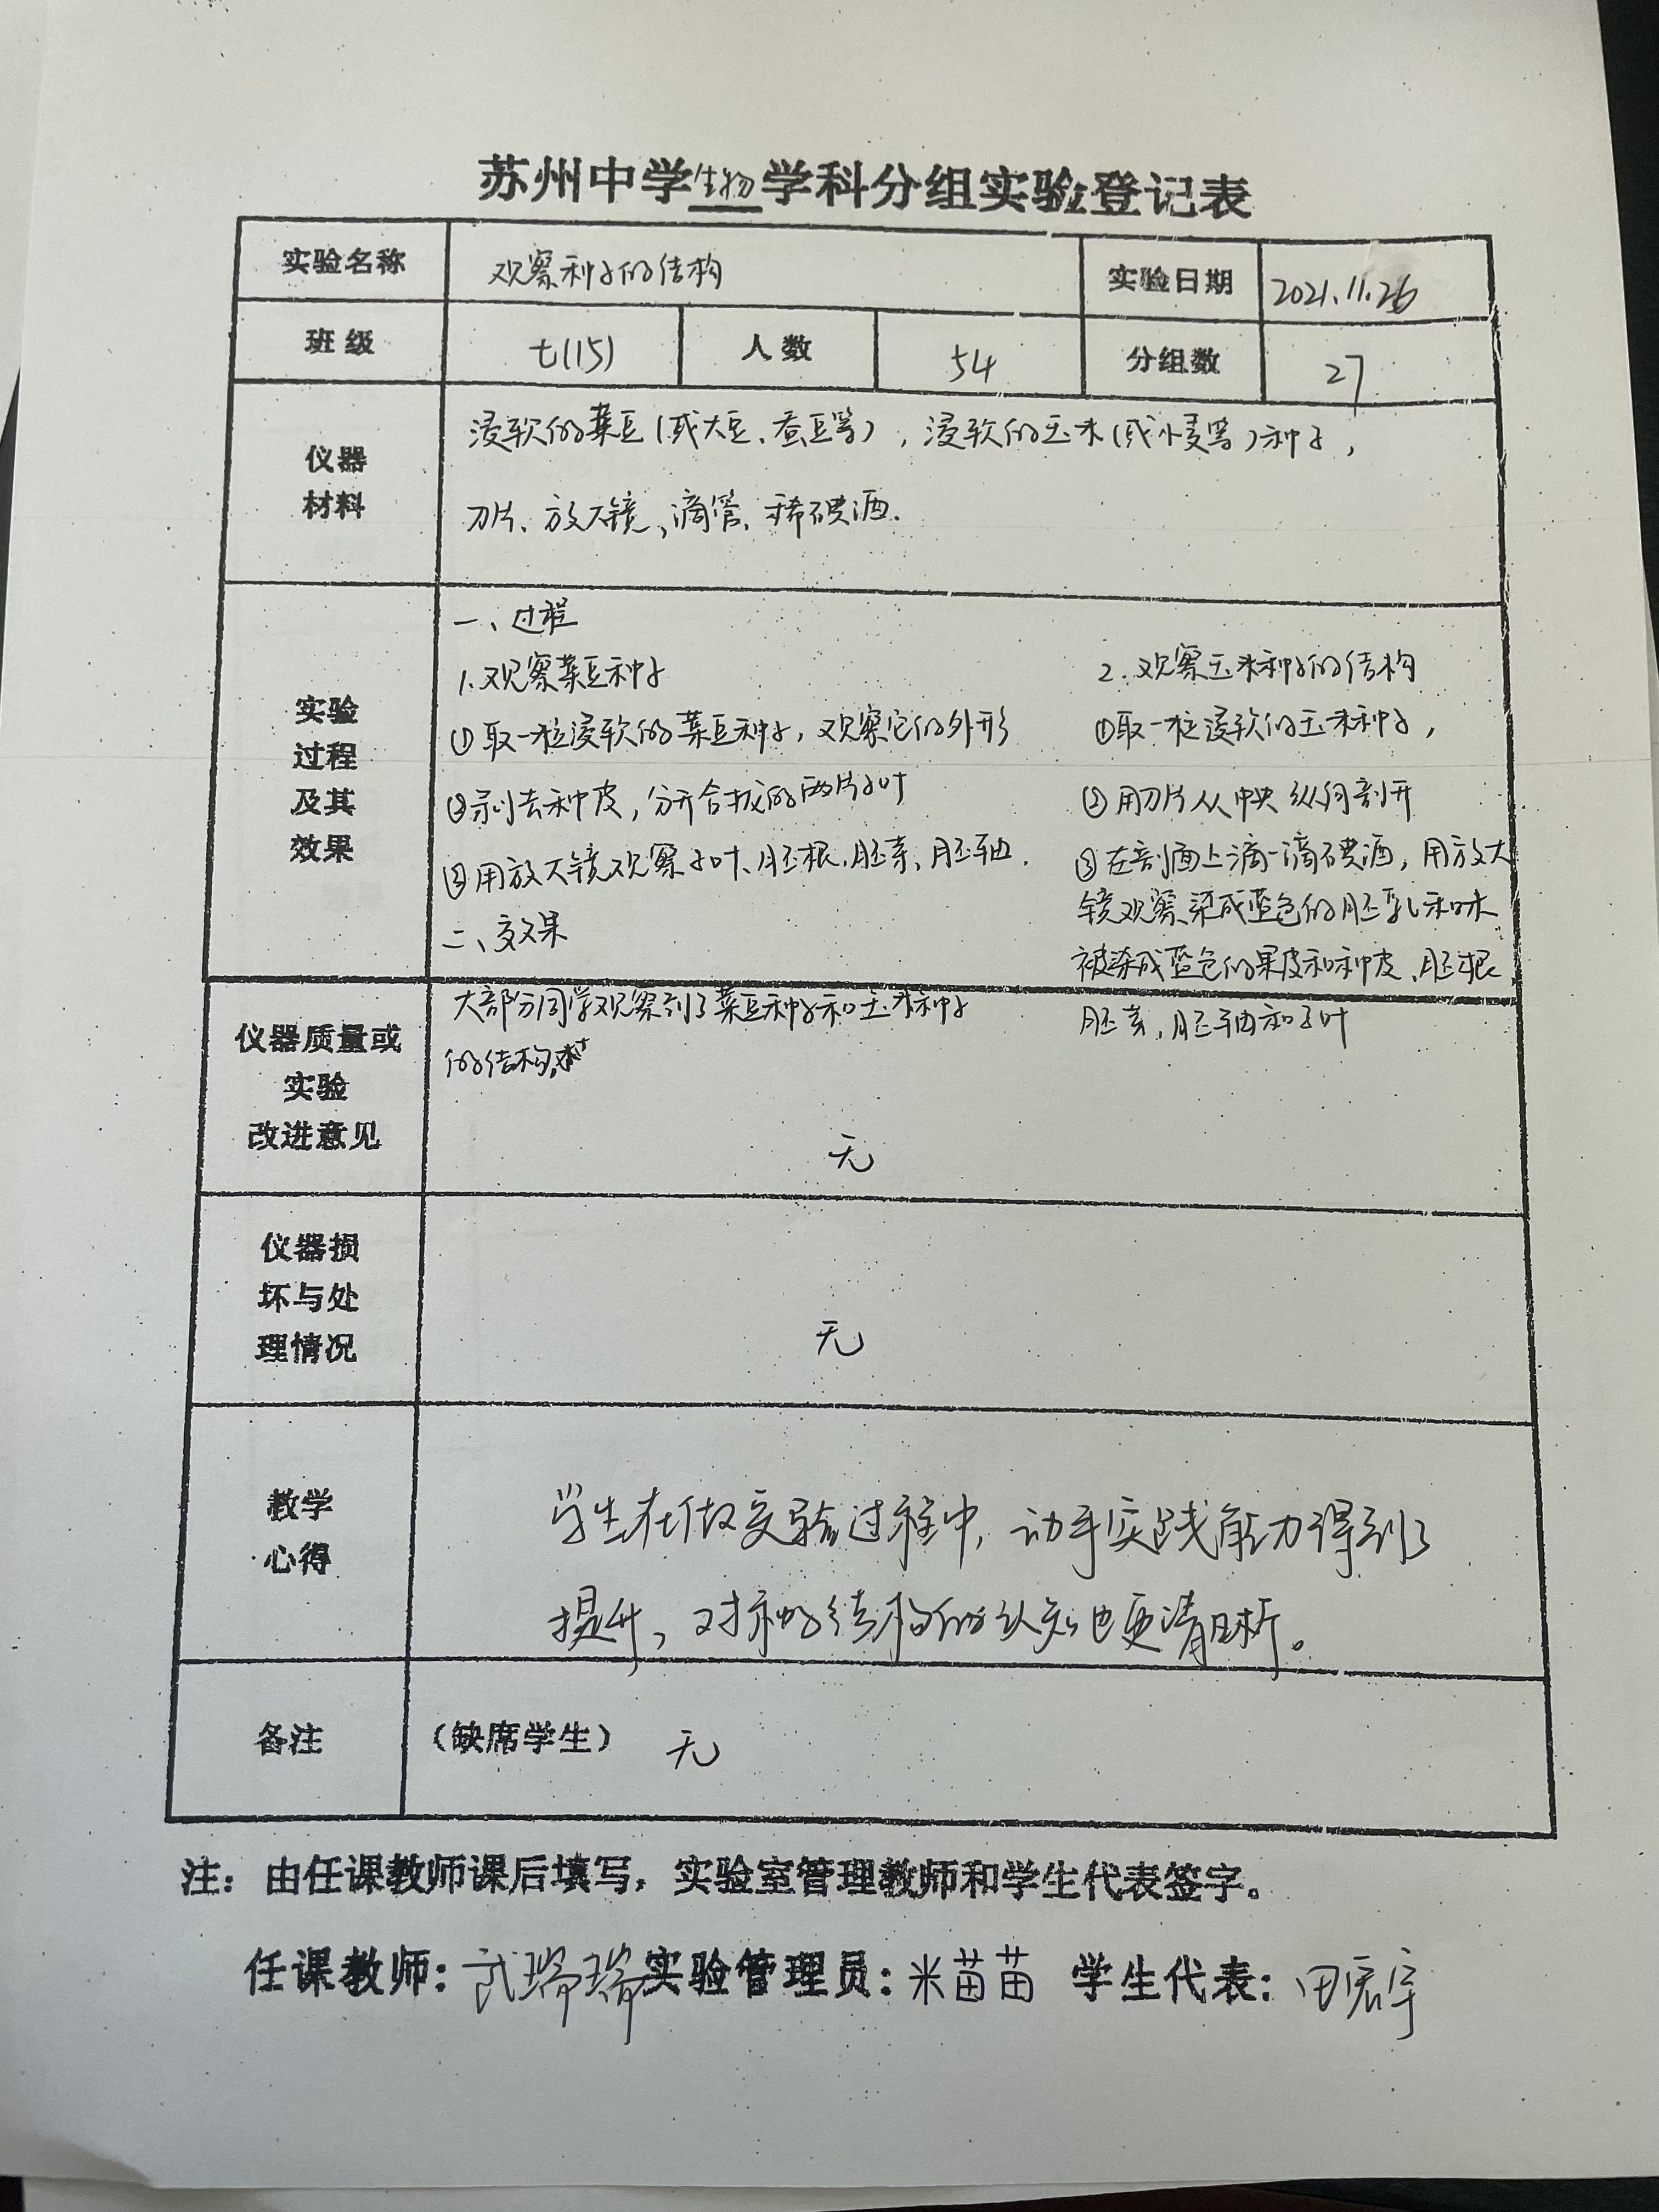 苏州中学生物学科分组实验登记表
实验名称 观察种子的结构 实验日期 2021.11.26
班级 七(15) 人数 54 分组数 27
仪器
材料
浸软的菜豆(或大豆、蚕豆等),浸软的玉米(或小麦等)种子,
刀片、放大镜、滴管、稀碘酒.
实验
过程
及其
效果
一、过程
1.观察菜豆种子
①取一粒浸软的菜豆种子,观察它的外形
②剥去种皮,分开合拢的两片子叶
③用放大镜观察子叶、胚根、胚芽、胚轴.
二、效果
大部分同学观察到了菜豆种子和玉米种子
的结构,
2.观察玉米种子的结构
①取一粒浸软的玉米种子,
②用刀片从中央纵向剖开
③在剖面上滴一滴碘酒,用放大
镜观察染成蓝色的胚乳和未
被染成蓝色的果皮和种皮、胚根、
胚芽,胚轴和子叶
仪器质量或
实验
改进意见
无
仪器损
坏与处
理情况
无
教学
心得
学生在做实验过程中,动手实践能力得到了
提升,对种子结构的认知也更清晰。
备注 (缺席学生) 无
注:由任课教师课后填写,实验室管理教师和学生代表签字。
任课教师:武瑞瑞 实验管理员:米苗苗 学生代表:田宏宇